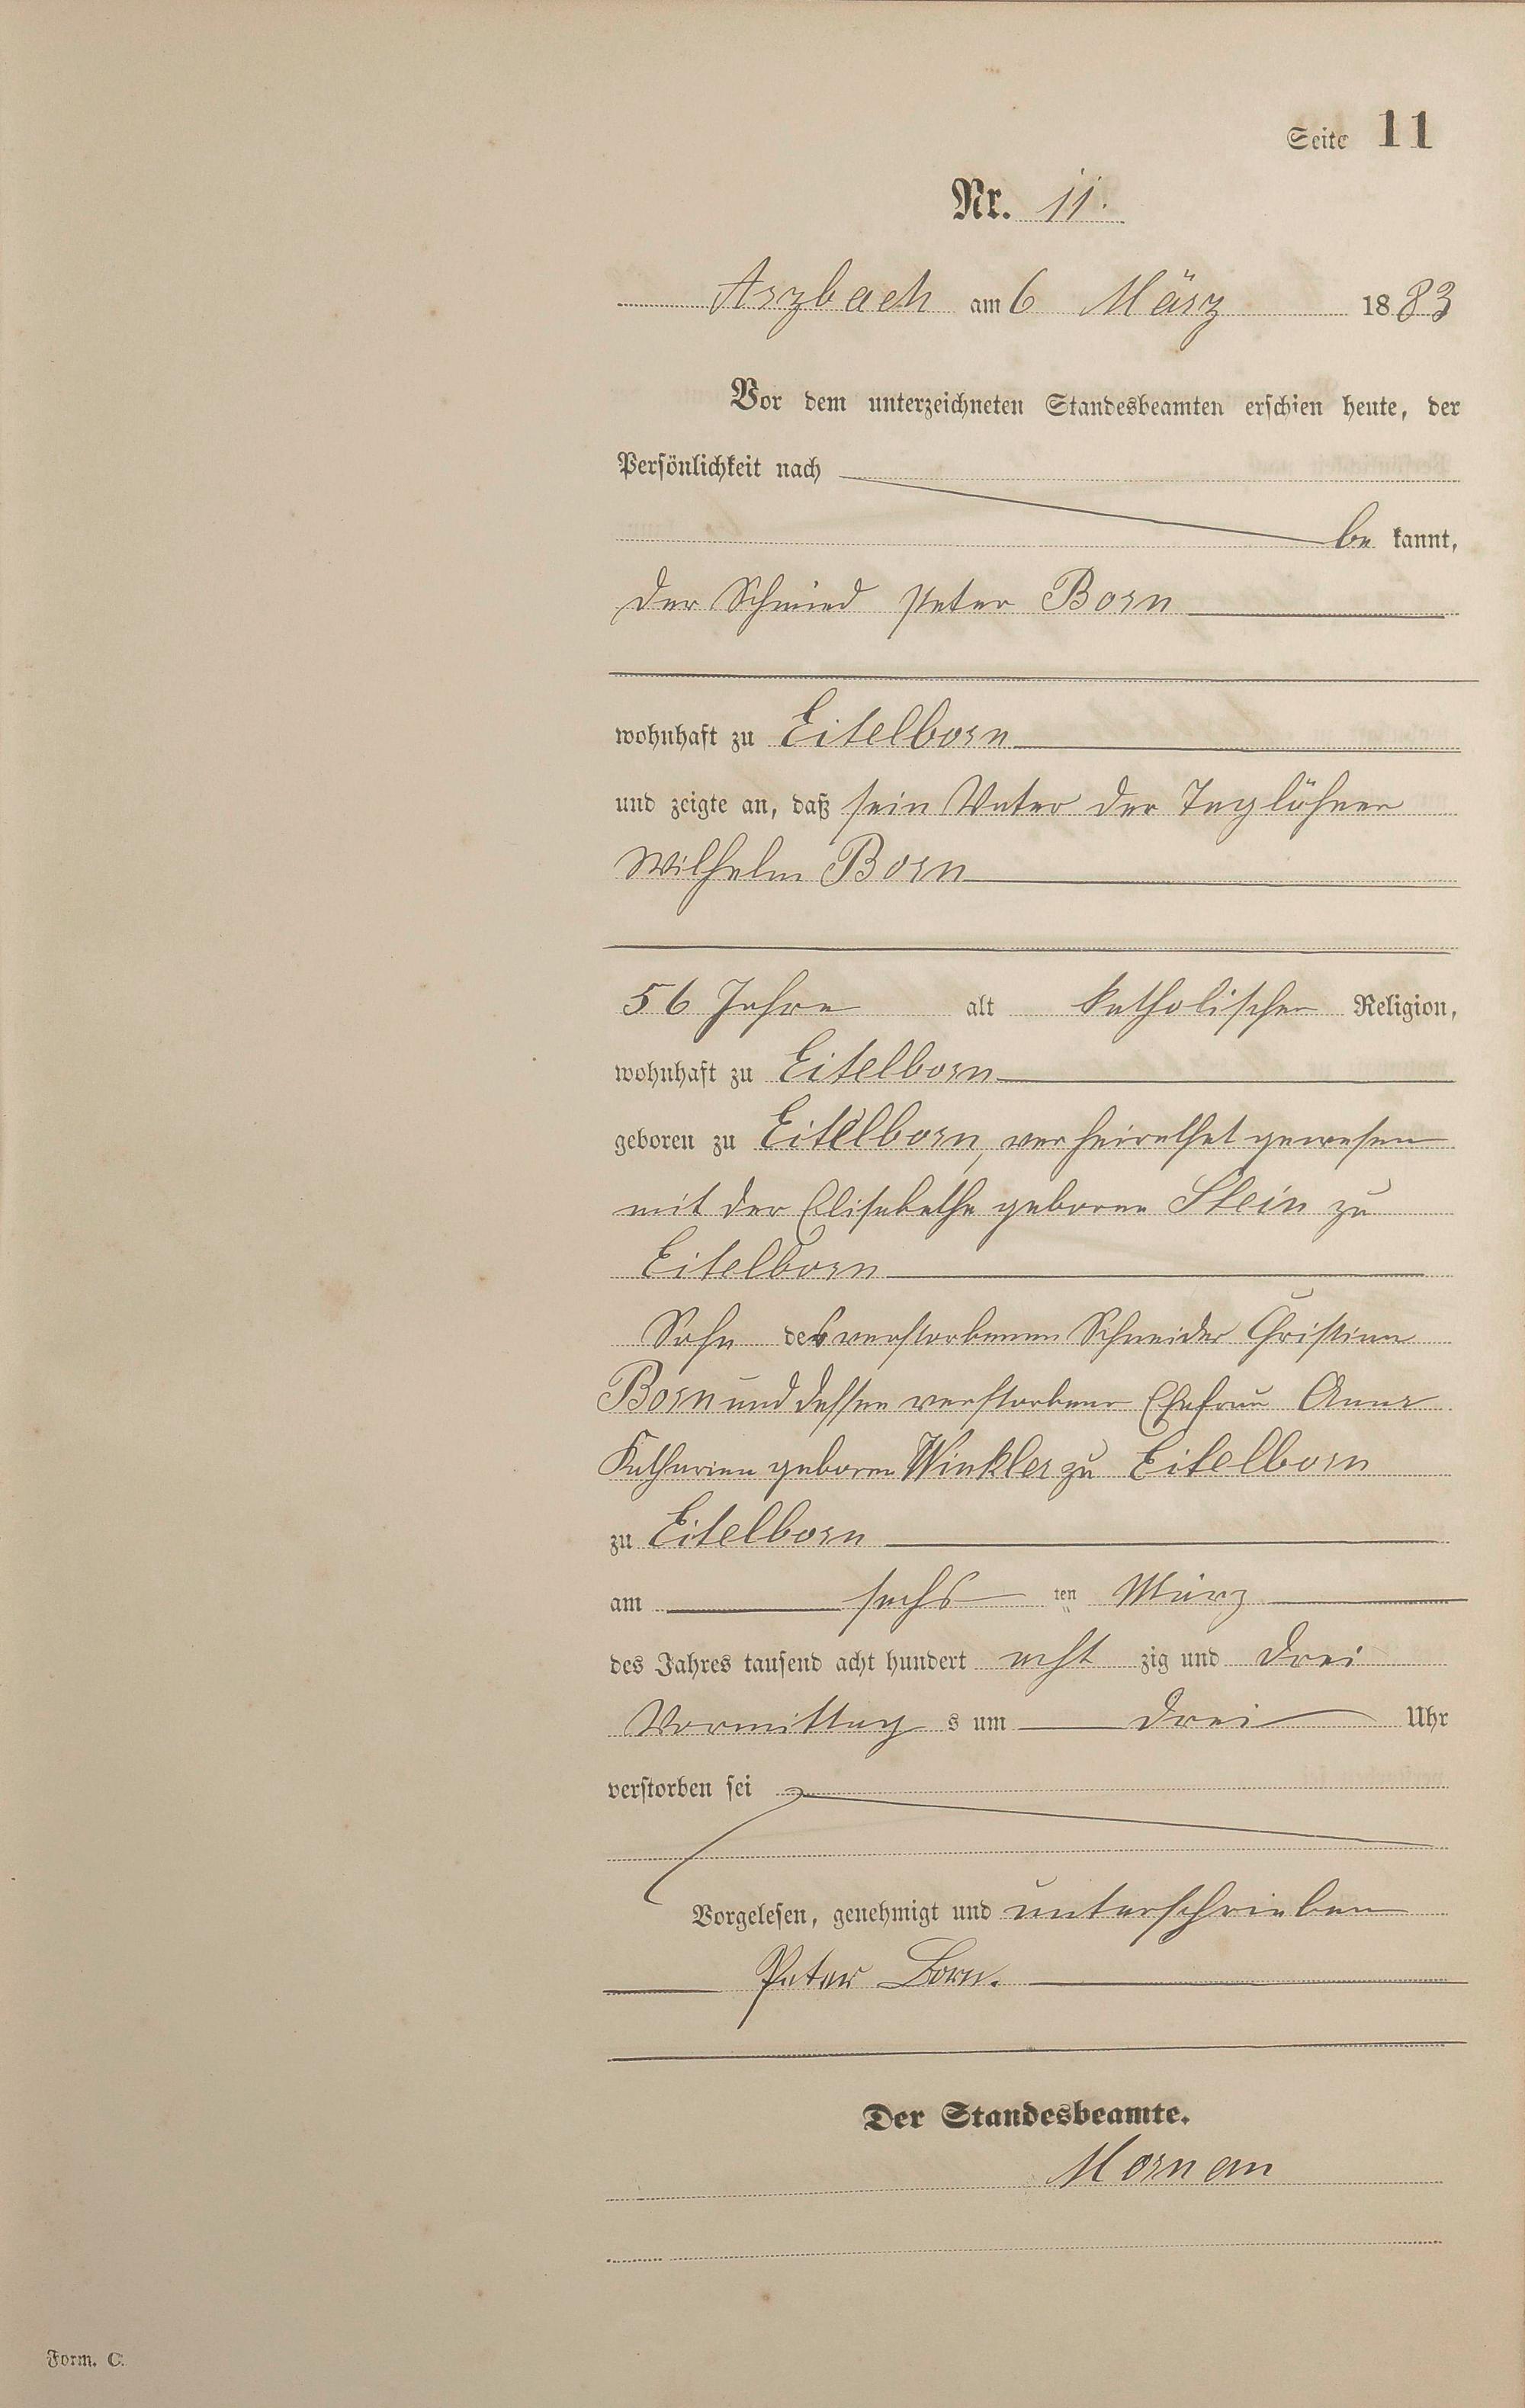 Seite 11
Nr. 11.
Arzbach am 6 März 1883
Vor dem unterzeichneten Standesbeamten erschien heute, der
Persönlichkeit nach
be kannt,
der Schmied Peter Born
wohnhaft zu Eitelborn
und zeigte an, daß sein Vater der Taglöhner
Wilhelm Born
56 Jahre alt katholischer Religion,
wohnhaft zu Eitelborn
geboren zu Eitelborn, verheirathet gewesen
mit der Elisabetha geborne Stein zu
Eitelborn
Sohn des verstorbenen Schneider Christian
Born und dessen verstorbene Ehefrau Anna
Katharina geborne Winkler zu Eitelborn
zu Eitelborn
am sechs ten März
des Jahres tausend acht hundert acht zig und drei
Vormittag s um drei Uhr
verstorben sei
Vorgelesen, genehmigt und unterschrieben
Peter Born.
Der Standesbeamte.
Form. C.